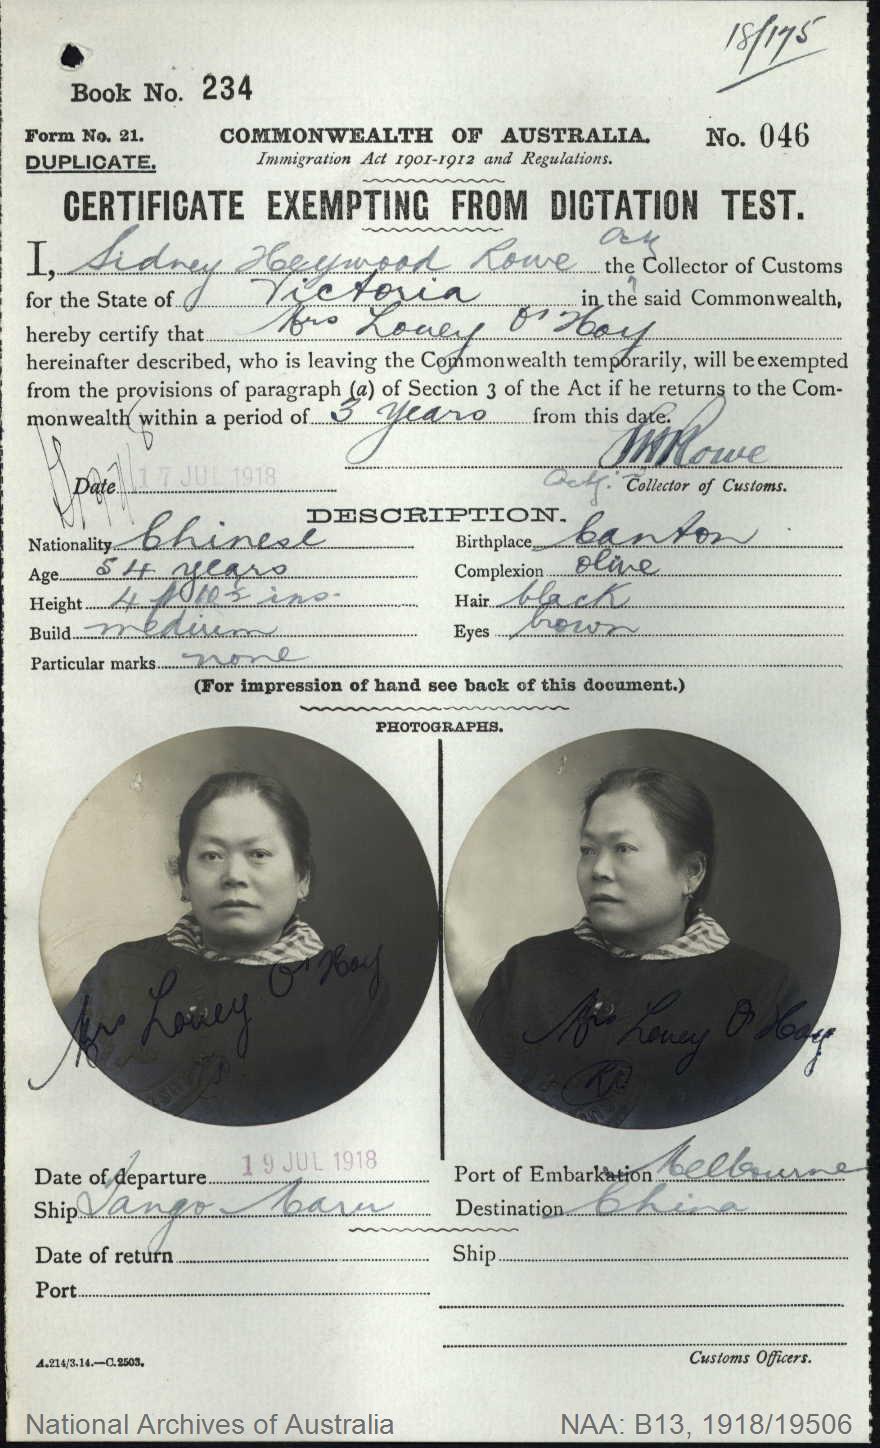 18/175
Book No. 234
Form No. 21. COMMONWEALTH OF AUSTRALIA. No. 046
DUPLICATE. Immigration Act 1901-1912 and Regulations.
CERTIFICATE EXEMPTING FROM DICTATION TEST.
I, Sidney Heywood Rowe the Actg Collector of Customs
for the State of Victoria in the said Commonwealth,
hereby certify that Mrs Louey O'Hoy
hereinafter described, who is leaving the Commonwealth temporarily, will be exempted
from the provisions of paragraph (a) of Section 3 of the Act if he returns to the Com-
monwealth within a period of 3 years from this date.
Rowe
Date 17 JUL 1918 Actg. Collector of Customs.
DESCRIPTION.
Nationality Chinese Birthplace Canton
Age 54 years Complexion olive
Height 4 ft 10½ ins. Hair black
Build medium Eyes brown
Particular marks none
(For impression of hand see back of this document.)
PHOTOGRAPHS.
Mrs Louey O'Hoy Mrs Louey O'Hoy
Date of departure 19 JUL 1918 Port of Embarkation Melbourne
Ship Tango Maru Destination China
Date of return Ship
Port
A.214/3.14.—C.2503. Customs Officers.
National Archives of Australia NAA: B13, 1918/19506